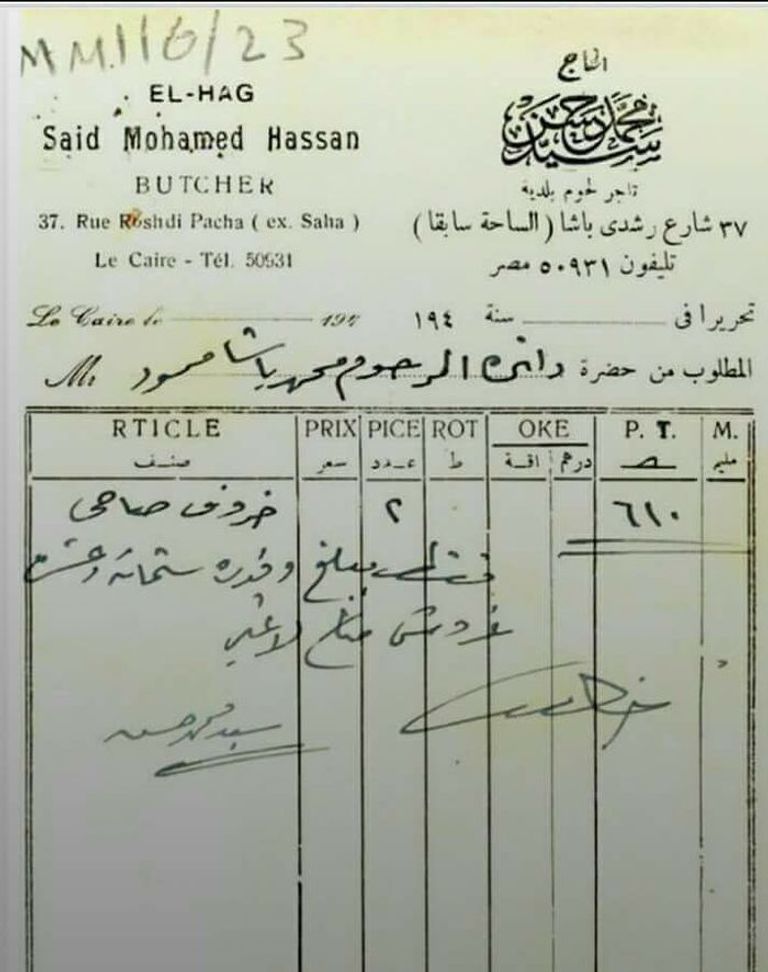 MM.116/23
EL-HAG
Said Mohamed Hassan
BUTCHER
37. Rue Roshdi Pacha ( ex. Saha )
Le Caire - Tél. 50931
الحاج
سيد محمد حسن
تاجر لحوم بلدية
٣٧ شارع رشدى باشا ( الساحة سابقا )
تليفون ٥٠٩٣١ مصر
Le Caire le 194
تحريرا فى سنة ١٩٤
المطلوب من حضرة دائرة المرحوم محمد باشا محمود Mr
RTICLE PRIX PICE ROT OKE P. T. M.
صنف سعر عدد ط اقة درهم مليم
خروف صاحى ٢ ٦١٠
فقط مبلغ وقدره ستمائة وعشرة
قروش صاغ لا غير
سيد محمد حسن